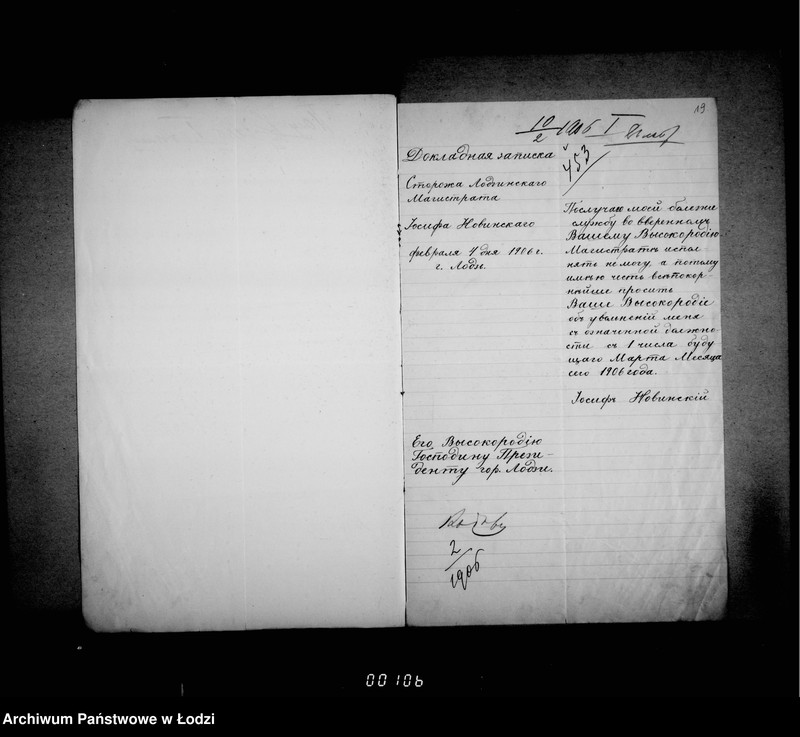 19
10/2 1906 I
453
Докладная записка
Сторожа Лодзинскаго
Магистрата
Іосифа Новинскаго
февраля 4 дня 1906 г.
г. Лодзь.
По случаю моей болезни
службу во вверенномъ
Вашему Высокородію
Магистратѣ испол
нять не могу, а потому
имѣю честь всѣпокор-
нѣйше просить
Ваше Высокородіе
объ увольненій меня
съ означенной должно-
сти съ 1 числа буду
щаго Марта Месяца
сего 1906 года.
Іосифъ Новинскій
Его Высокородію
Господину Прези-
денту гор. Лодзи.
2/1906
00106
Archiwum Państwowe w Łodzi